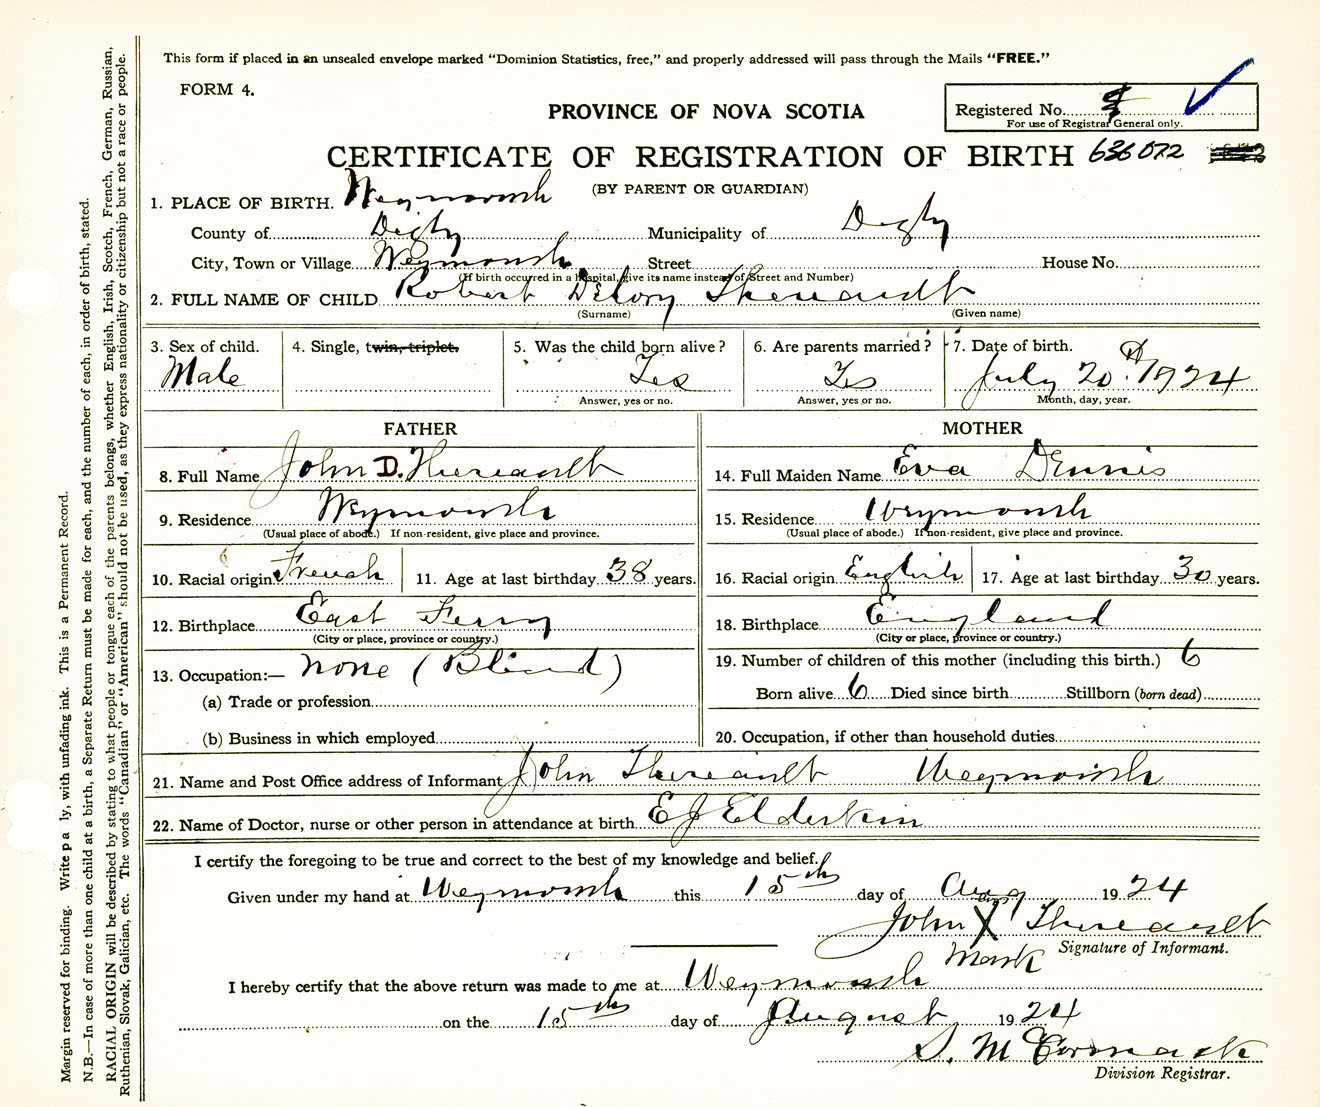 This form if placed in an unsealed envelope marked "Dominion Statistics, free," and properly addressed will pass through the Mails "FREE."
FORM 4.
PROVINCE OF NOVA SCOTIA
Registered No.
For use of Registrar General only.
CERTIFICATE OF REGISTRATION OF BIRTH 636072
(BY PARENT OR GUARDIAN)
1. PLACE OF BIRTH. Weymouth
County of Digby Municipality of Digby
City, Town or Village Weymouth Street House No.
(If birth occurred in a hospital, give its name instead of Street and Number)
2. FULL NAME OF CHILD Robert Delory Thereault
(Surname) (Given name)
3. Sex of child. 4. Single, twin, triplet. 5. Was the child born alive? 6. Are parents married? 7. Date of birth.
Male Yes Yes July 20th 1924
Answer, yes or no. Answer, yes or no. Month, day, year.
FATHER MOTHER
8. Full Name John D. Thereault 14. Full Maiden Name Eva Dennis
9. Residence Weymouth 15. Residence Weymouth
(Usual place of abode.) If non-resident, give place and province. (Usual place of abode.) If non-resident, give place and province.
10. Racial origin French 11. Age at last birthday 38 years. 16. Racial origin English 17. Age at last birthday 30 years.
12. Birthplace East Ferry 18. Birthplace England
(City or place, province or country.) (City or place, province or country.)
13. Occupation:— none (Blind) 19. Number of children of this mother (including this birth.) 6
(a) Trade or profession Born alive 6 Died since birth Stillborn (born dead)
(b) Business in which employed 20. Occupation, if other than household duties
21. Name and Post Office address of Informant John Thereault Weymouth
22. Name of Doctor, nurse or other person in attendance at birth E J Elderkin
I certify the foregoing to be true and correct to the best of my knowledge and belief.
Given under my hand at Weymouth this 15th day of Aug 1924
John X Thereault
Mark Signature of Informant.
I hereby certify that the above return was made to me at Weymouth
on the 15th day of August 1924
S. McCormack
Division Registrar.
Margin reserved for binding. Write pa ly, with unfading ink. This is a Permanent Record.
N.B.—In case of more than one child at a birth, a Separate Return must be made for each, and the number of each, in order of birth, stated.
RACIAL ORIGIN will be described by stating to what people or tongue each of the parents belongs, whether English, Irish, Scotch, French, German, Russian,
Ruthenian, Slovak, Galician, etc. The words "Canadian" or "American" should not be used, as they express nationality or citizenship but not a race or people.